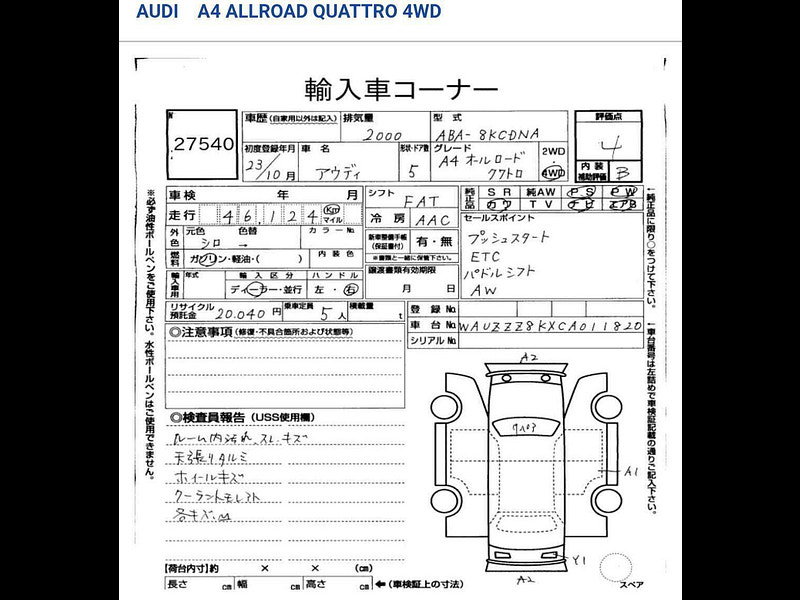 AUDI A4 ALLROAD QUATTRO 4WD
輸入車コーナー
27540
車歴(自家用以外は記入)
排気量
2000
型式
ABA-8KCDNA
評価点
4
内装補助評価 B
初度登録年月
23/10月
車名
アウディ
形状・ドア数
5
グレード
A4 オールロード
クワトロ
2WD
4WD
車検 年 月
走行 46,124 Km マイル
外色 元色 色替 カラーNo.
シロ →
燃料 ガソリン・軽油・( )
内装色
輸入車用 年式 輸入区分 ハンドル
ディーラー・並行 左・右
リサイクル預託金 20.040円
乗車定員 5人
積載量 t
シフト FAT
冷房 AAC
新車整備手帳(保証書付) 有・無
※書類と一緒に保管下さい。
譲渡書類有効期限
月 日
純正品 SR 純AW PS PW
カワ TV ナビ エアB
セールスポイント
プッシュスタート
ETC
パドルシフト
AW
登録No.
車台No. WAUZZZ8KXCA011820
シリアルNo.
※必ず油性ボールペンをご使用下さい。水性ボールペンはご使用できません。
←純正品に限り○をつけて下さい。
←車台番号は左詰めで車検証記載の通りご記入下さい。
◎注意事項(修復・不具合箇所および状態等)
◎検査員報告(USS使用欄)
ルーム内汚れ、スレ、キズ
天張りタルミ
ホイールキズ
クーラントモレシト
各キズ、凹
A2
A1
Y1
A2
スペア
【荷台内寸】約 × × (cm)
長さ cm 幅 cm 高さ cm ←(車検証上の寸法)